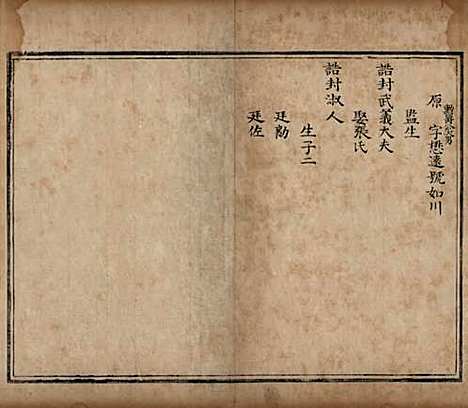 原 字懋遠號如川
監生
誥封武義大夫
娶張氏
誥封淑人
生子二
廷勛
廷佐